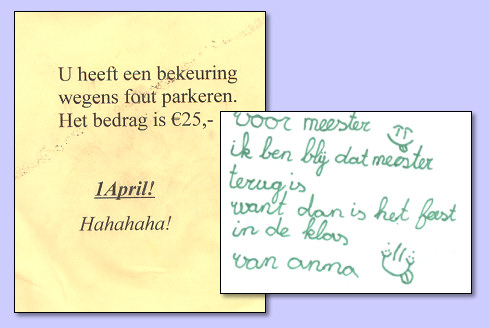 U heeft een bekeuring
wegens fout parkeren.
Het bedrag is €25,-
1April!
Hahahaha!
voor meester
ik ben blij dat meester
terug is
want dan is het feest
in de klas
van anna